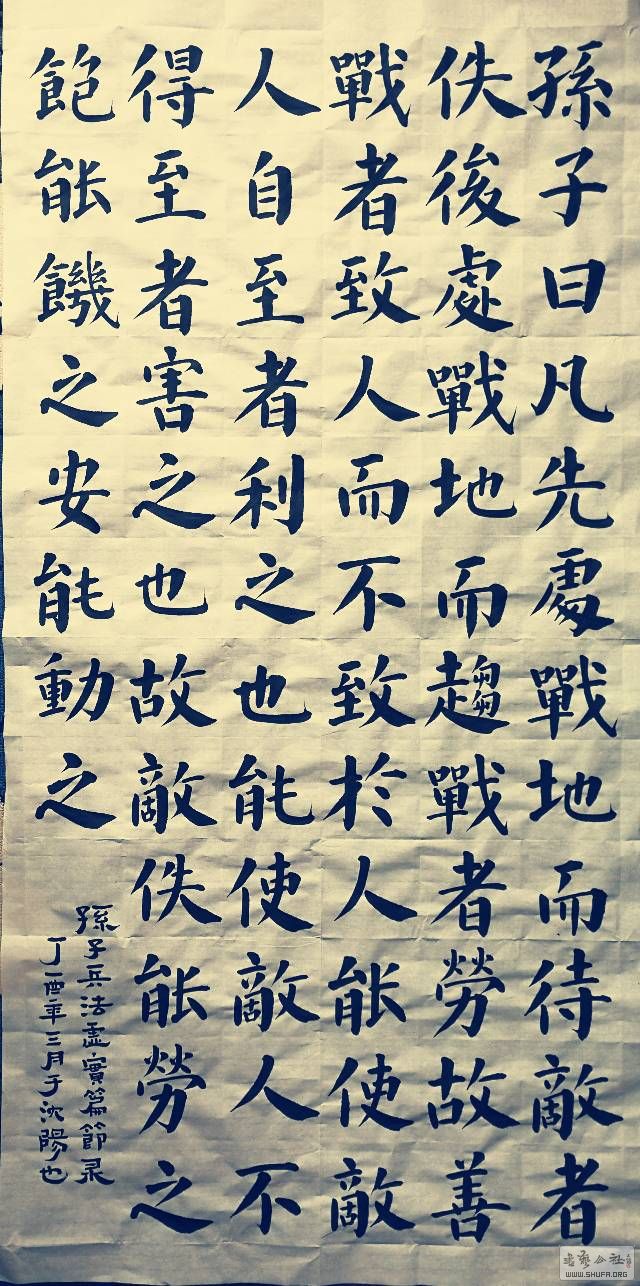 孫子曰凡先處戰地而待敵者
佚後處戰地而趨戰者勞故善
戰者致人而不致於人能使敵
人自至者利之也能使敵人不
得至者害之也故敵佚能勞之
飽能饑之安能動之
孫子兵法虛實篇節录
丁酉年三月于沈陽也
书艺公社
WWW.SHUFA.ORG